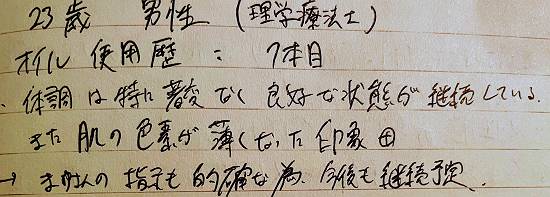 23歳 男性 (理学療法士)
オイル使用歴: 7本目
・体調は特に著変なく良好な状態が継続している。
また肌の色素が薄くなった印象田
→ の指示も的確な為、今後も継続予定。